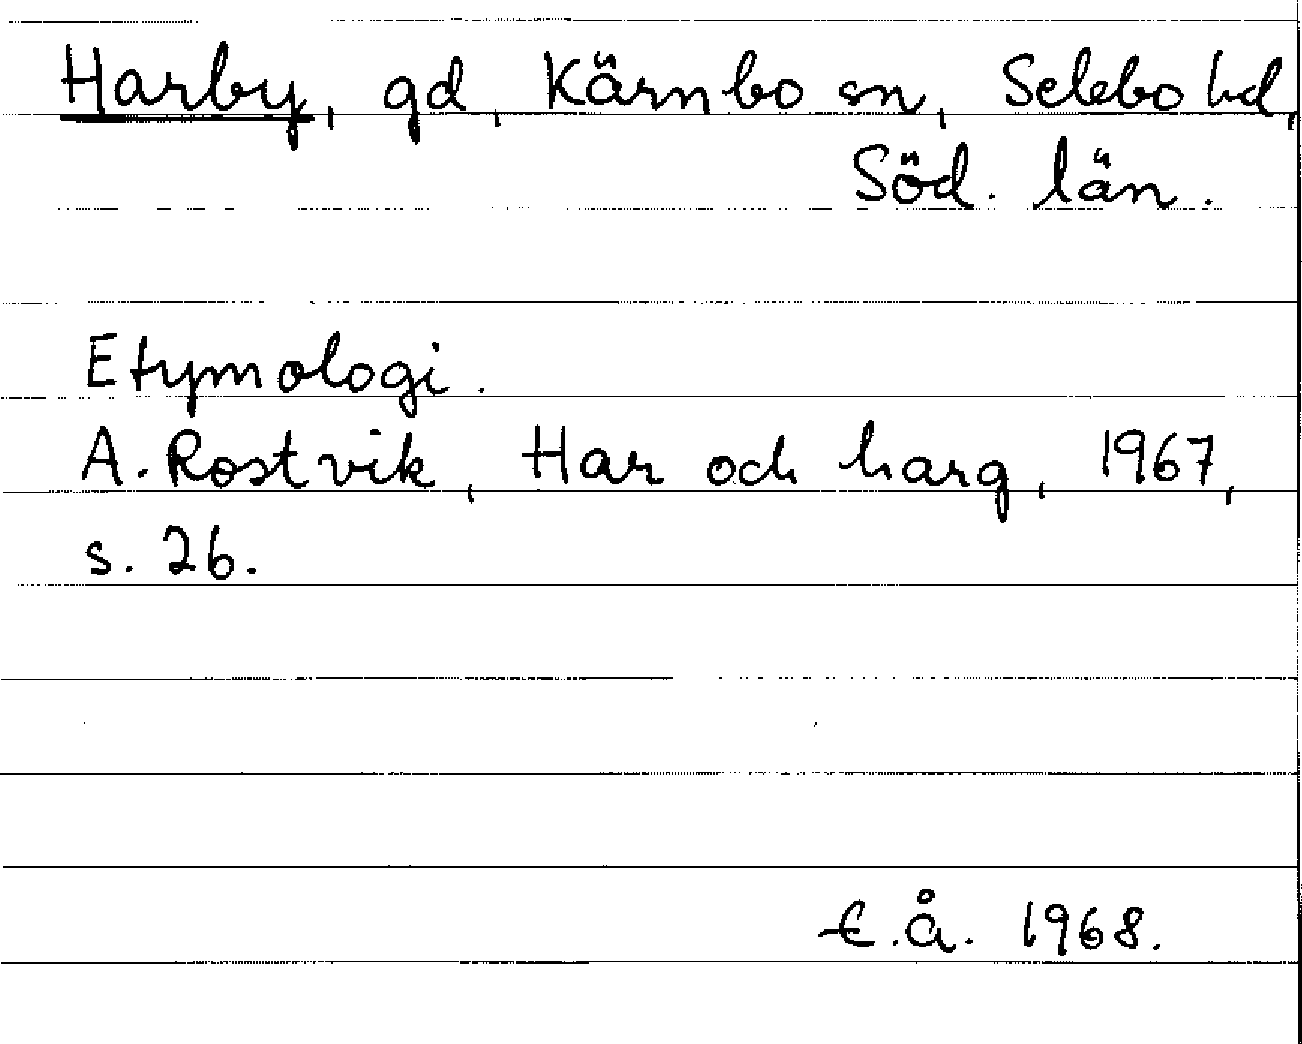 Harby, gd, Kärnbo sn, Selebo hd,
Söd. län.
Etymologi.
A. Rostvik, Har och harg, 1967,
s. 26.
E.Å. 1968.